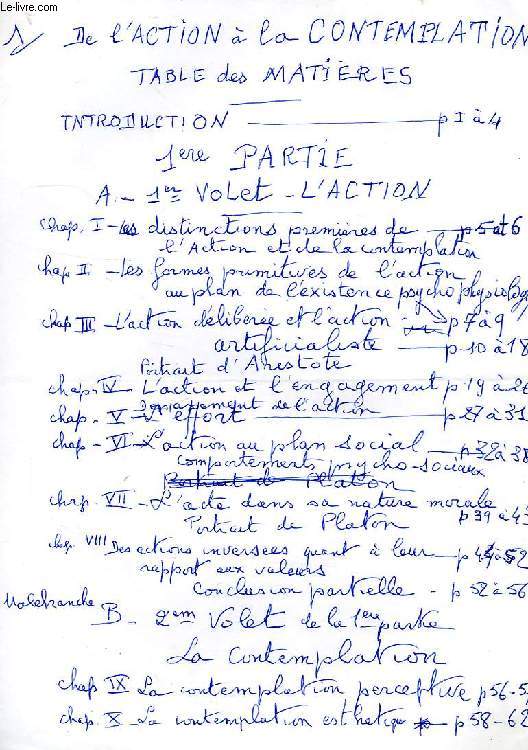 Le-livre.com
1/ De l'ACTION à la CONTEMPLATION
TABLE des MATIÈRES
INTRODUCTION p I à 4
1ere PARTIE
A. - 1er Volet - L'ACTION
Chap. I - Les distinctions premières de p 5 et 6
l'Action et de la contemplation
chap II. - Les formes primitives de l'action
au plan de l'existence psychophysiolog
p 7 à 9
chap III - L'action délibérée et l'action
artificialiste p - 10 à 18
Portrait d'Aristote
chap. IV - L'action et l'engagement p 19 à 26
de l'action
chap. - V - L'effort p 27 à 31
chap - VI - L'action au plan social p 32 à 38
comportements psycho-sociaux
Portrait de Platon
chap. VII - L'acte dans sa nature morale
Portrait de Platon p 39 à 4
chap. VIII Des actions inversées quant à leur p 4 à 52
rapport aux valeurs
Conclusion partielle - p 52 à 56
Malebranche B - 2em Volet de la 1ere partie
La contemplation
chap IX La contemplation perceptive p 56-5
chap. X - La contemplation esthétique p 58-62